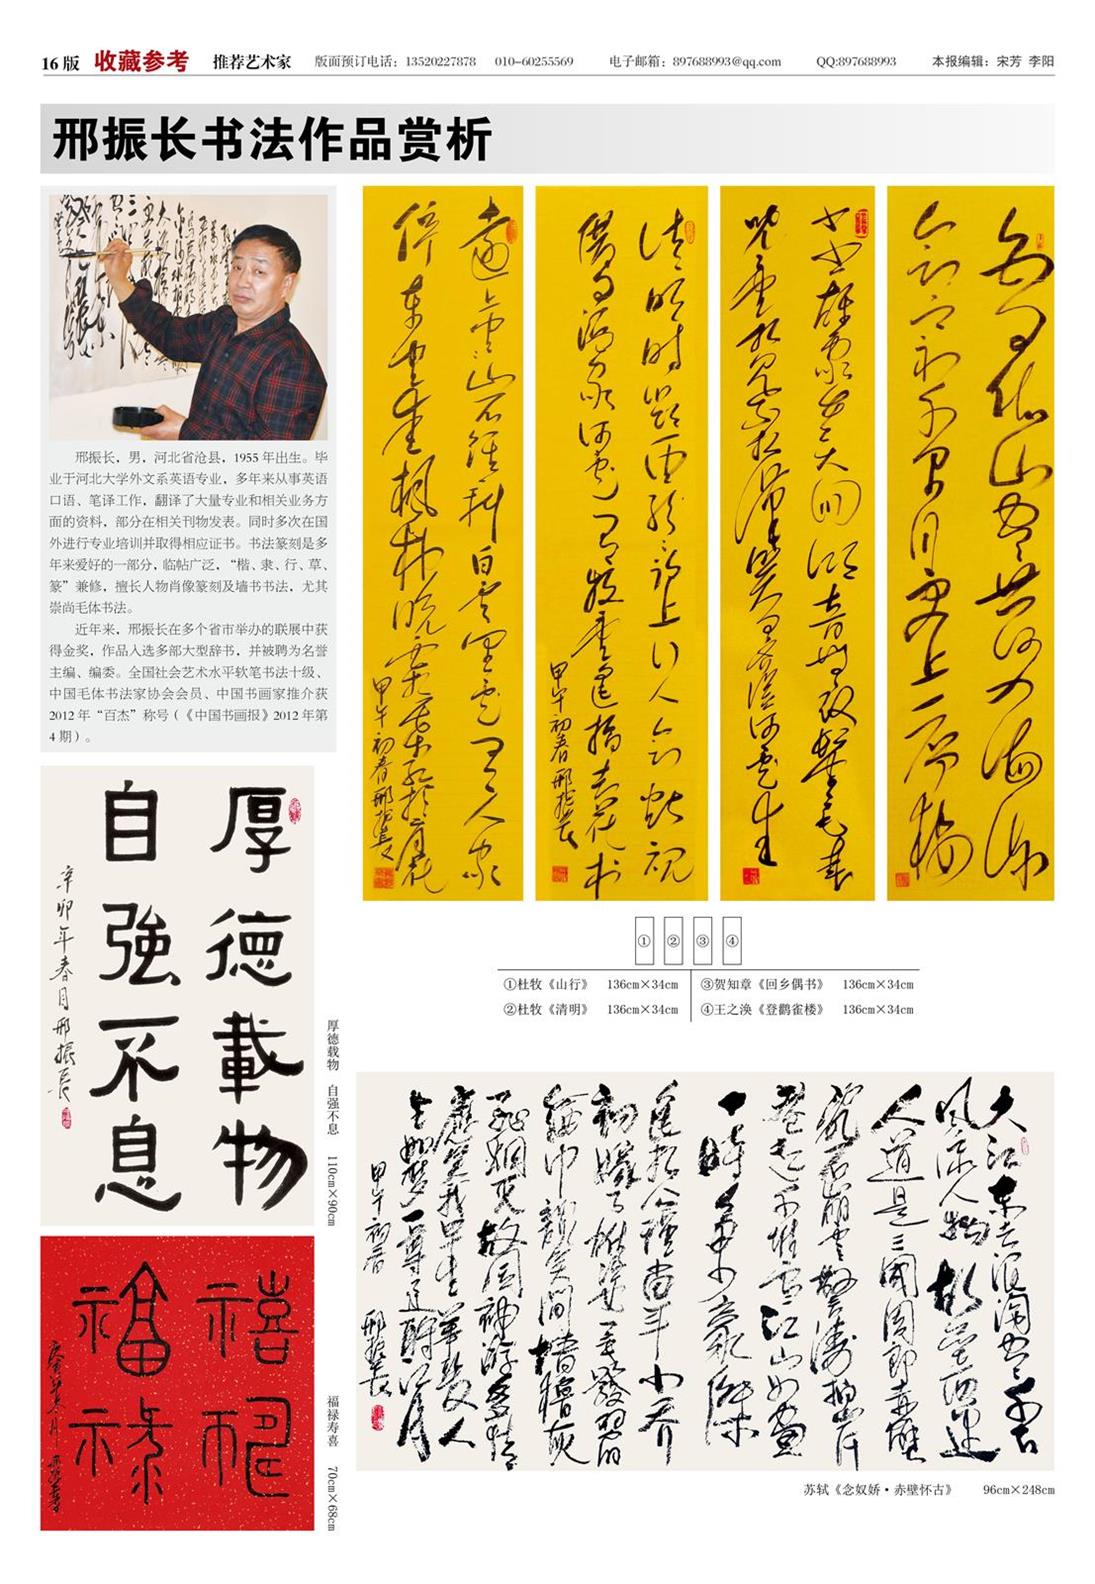 16 版 收藏参考 推荐艺术家 版面预订电话：13520227878 010-60255569 电子邮箱：897688993@qq.com QQ:897688993 本报编辑：宋芳 李阳
邢振长书法作品赏析
邢振长，男，河北省沧县，1955 年出生。毕
业于河北大学外文系英语专业，多年来从事英语
口语、笔译工作，翻译了大量专业和相关业务方
面的资料，部分在相关刊物发表。同时多次在国
外进行专业培训并取得相应证书。书法篆刻是多
年来爱好的一部分，临帖广泛，“楷、隶、行、草、
篆”兼修，擅长人物肖像篆刻及墙书书法，尤其
崇尚毛体书法。
近年来，邢振长在多个省市举办的联展中获
得金奖，作品入选多部大型辞书，并被聘为名誉
主编、编委。全国社会艺术水平软笔书法十级、
中国毛体书法家协会会员、中国书画家推介获
2012 年“百杰”称号（《中国书画报》2012 年第
4 期）。
远上寒山石径斜白云深处有人家
停车坐爱枫林晚霜叶红于二月花
甲午初春邢振长
清明时节雨纷纷路上行人欲断魂
借问酒家何处有牧童遥指杏花村
甲午初春邢振长
①
②
③
④
①杜牧《山行》 136cm×34cm
②杜牧《清明》 136cm×34cm
③贺知章《回乡偶书》 136cm×34cm
④王之涣《登鹳雀楼》 136cm×34cm
厚德載物
自強不息
辛卯年春月邢振長
厚德载物 自强不息 110cm×90cm
福禄寿喜 70cm×68cm
大江东去浪淘尽千古
风流人物故垒西边
人道是三國周郎赤壁
乱石崩云惊涛拍岸
卷起千堆雪江山如画
一時多少豪傑
遥想公瑾当年小乔
初嫁了雄姿英发羽扇
纶巾談笑间樯橹灰
飛烟灭故國神游多情
应笑我早生华发人
生如梦一尊还酹江月
甲午初春 邢振长
苏轼《念奴娇·赤壁怀古》 96cm×248cm